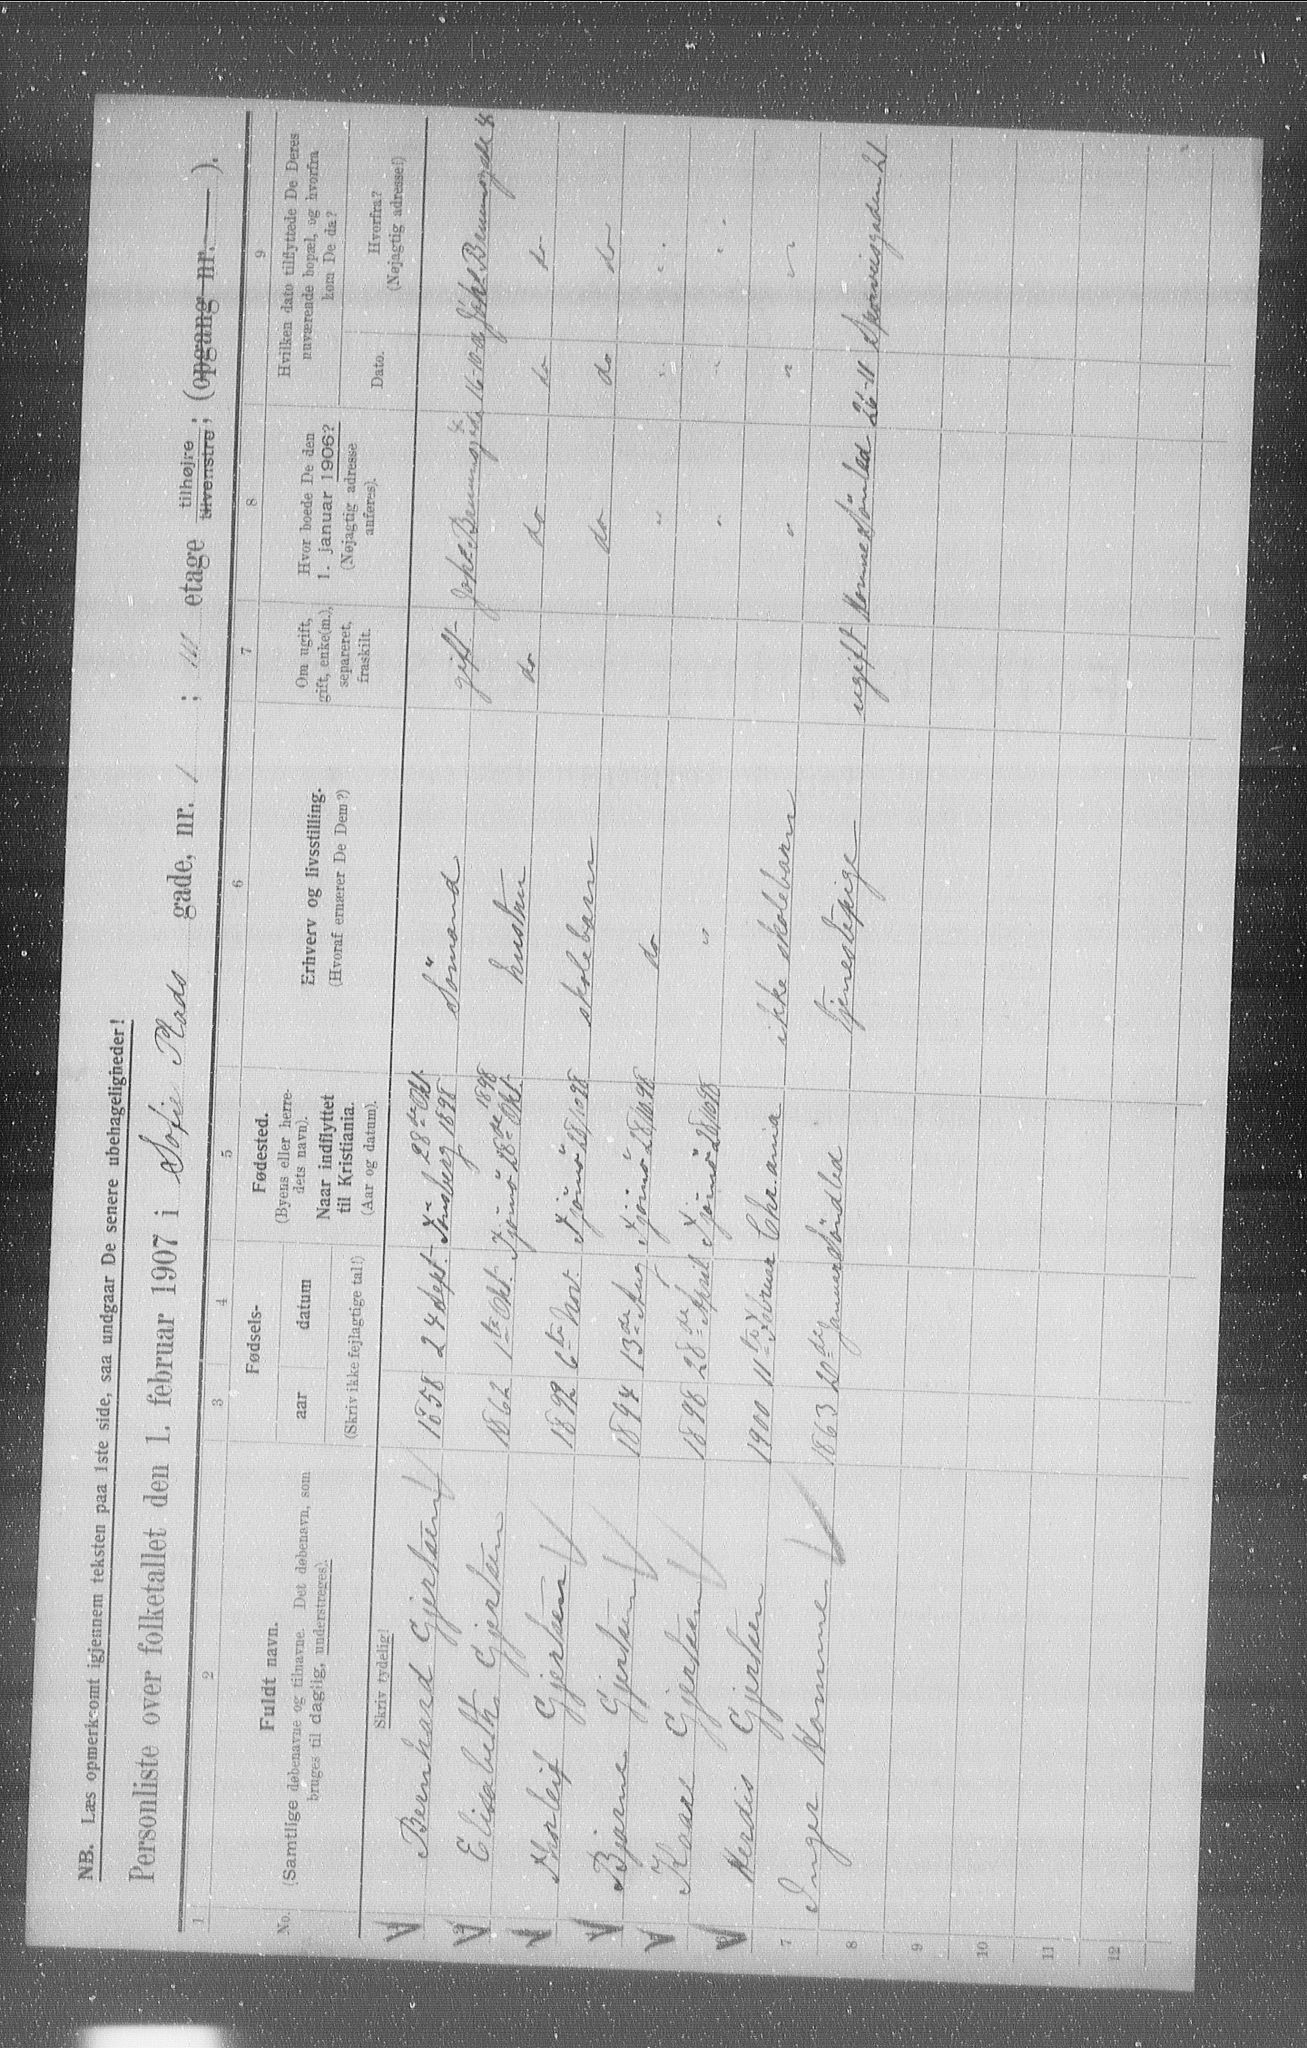 NB. Læs opmerksomt igjennem teksten paa 1ste side, saa undgaar De senere ubehageligheder!
Personliste over folketallet den 1. februar 1907 i Sofie Plads gade, nr. 1 ; III etage tilhøjre ; (opgang nr. — ).
tilvenstre
1 2 3 4 5 6 7 8 9
No.
Fuldt navn.
(Samtlige døbenavne og tilnavne. Det døbenavn, som
bruges til daglig, understreges).
Skriv tydelig!
Fødsels-
aar datum
(Skriv ikke fejlagtige tal!)
Fødested.
(Byens eller herre-
dets navn).
Naar indflyttet
til Kristiania.
(Aar og datum).
Erhverv og livsstilling.
(Hvoraf ernærer De Dem?)
Om ugift,
gift, enke(m.),
separeret,
fraskilt.
Hvor boede De den
1. januar 1906?
(Nøjagtig adresse
anføres).
Hvilken dato tilflyttede De Deres
nuværende bopæl, og hvorfra
kom De da?
Dato.
Hvorfra?
(Nøjagtig adresse!)
Bernhard Gjertsen 1858 24 Sept. Tönsberg 28de Okt. 1898 Sömand gift
Elisabeth Gjertsen 1862 1ste Okt. Tjömö 28de Okt. 1898 hustru do do do do
Thorleif Gjertsen 1892 6te Nov. Tjömö 28/10 98 skolebarn do do do
Bjarne Gjertsen 1894 13de Aug Tjömö 28/10 98 do " " "
Kaare Gjertsen 1898 28de April Tjömö 28/10 98 " " " "
Herdis Gjertsen 1900 11te Februar Chr.ania ikke skolebarn " " "
7 Inger Homme 1863 20de Januar Söndled tjenestepige ugift Homme Söndled 26-11 Sporveisgaden 21
8
9
10
11
12